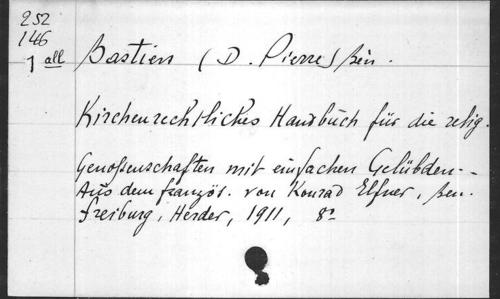 252
146
1 all
Bastien (D. Pierre) Ben.
Kirchenrechtliches Handbuch für die relig.
Genoßenschaften mit einfachen Gelübden -
Aus dem französ. von Konrad Elfner, Ben.
Freiburg, Herder, 1911, 8°